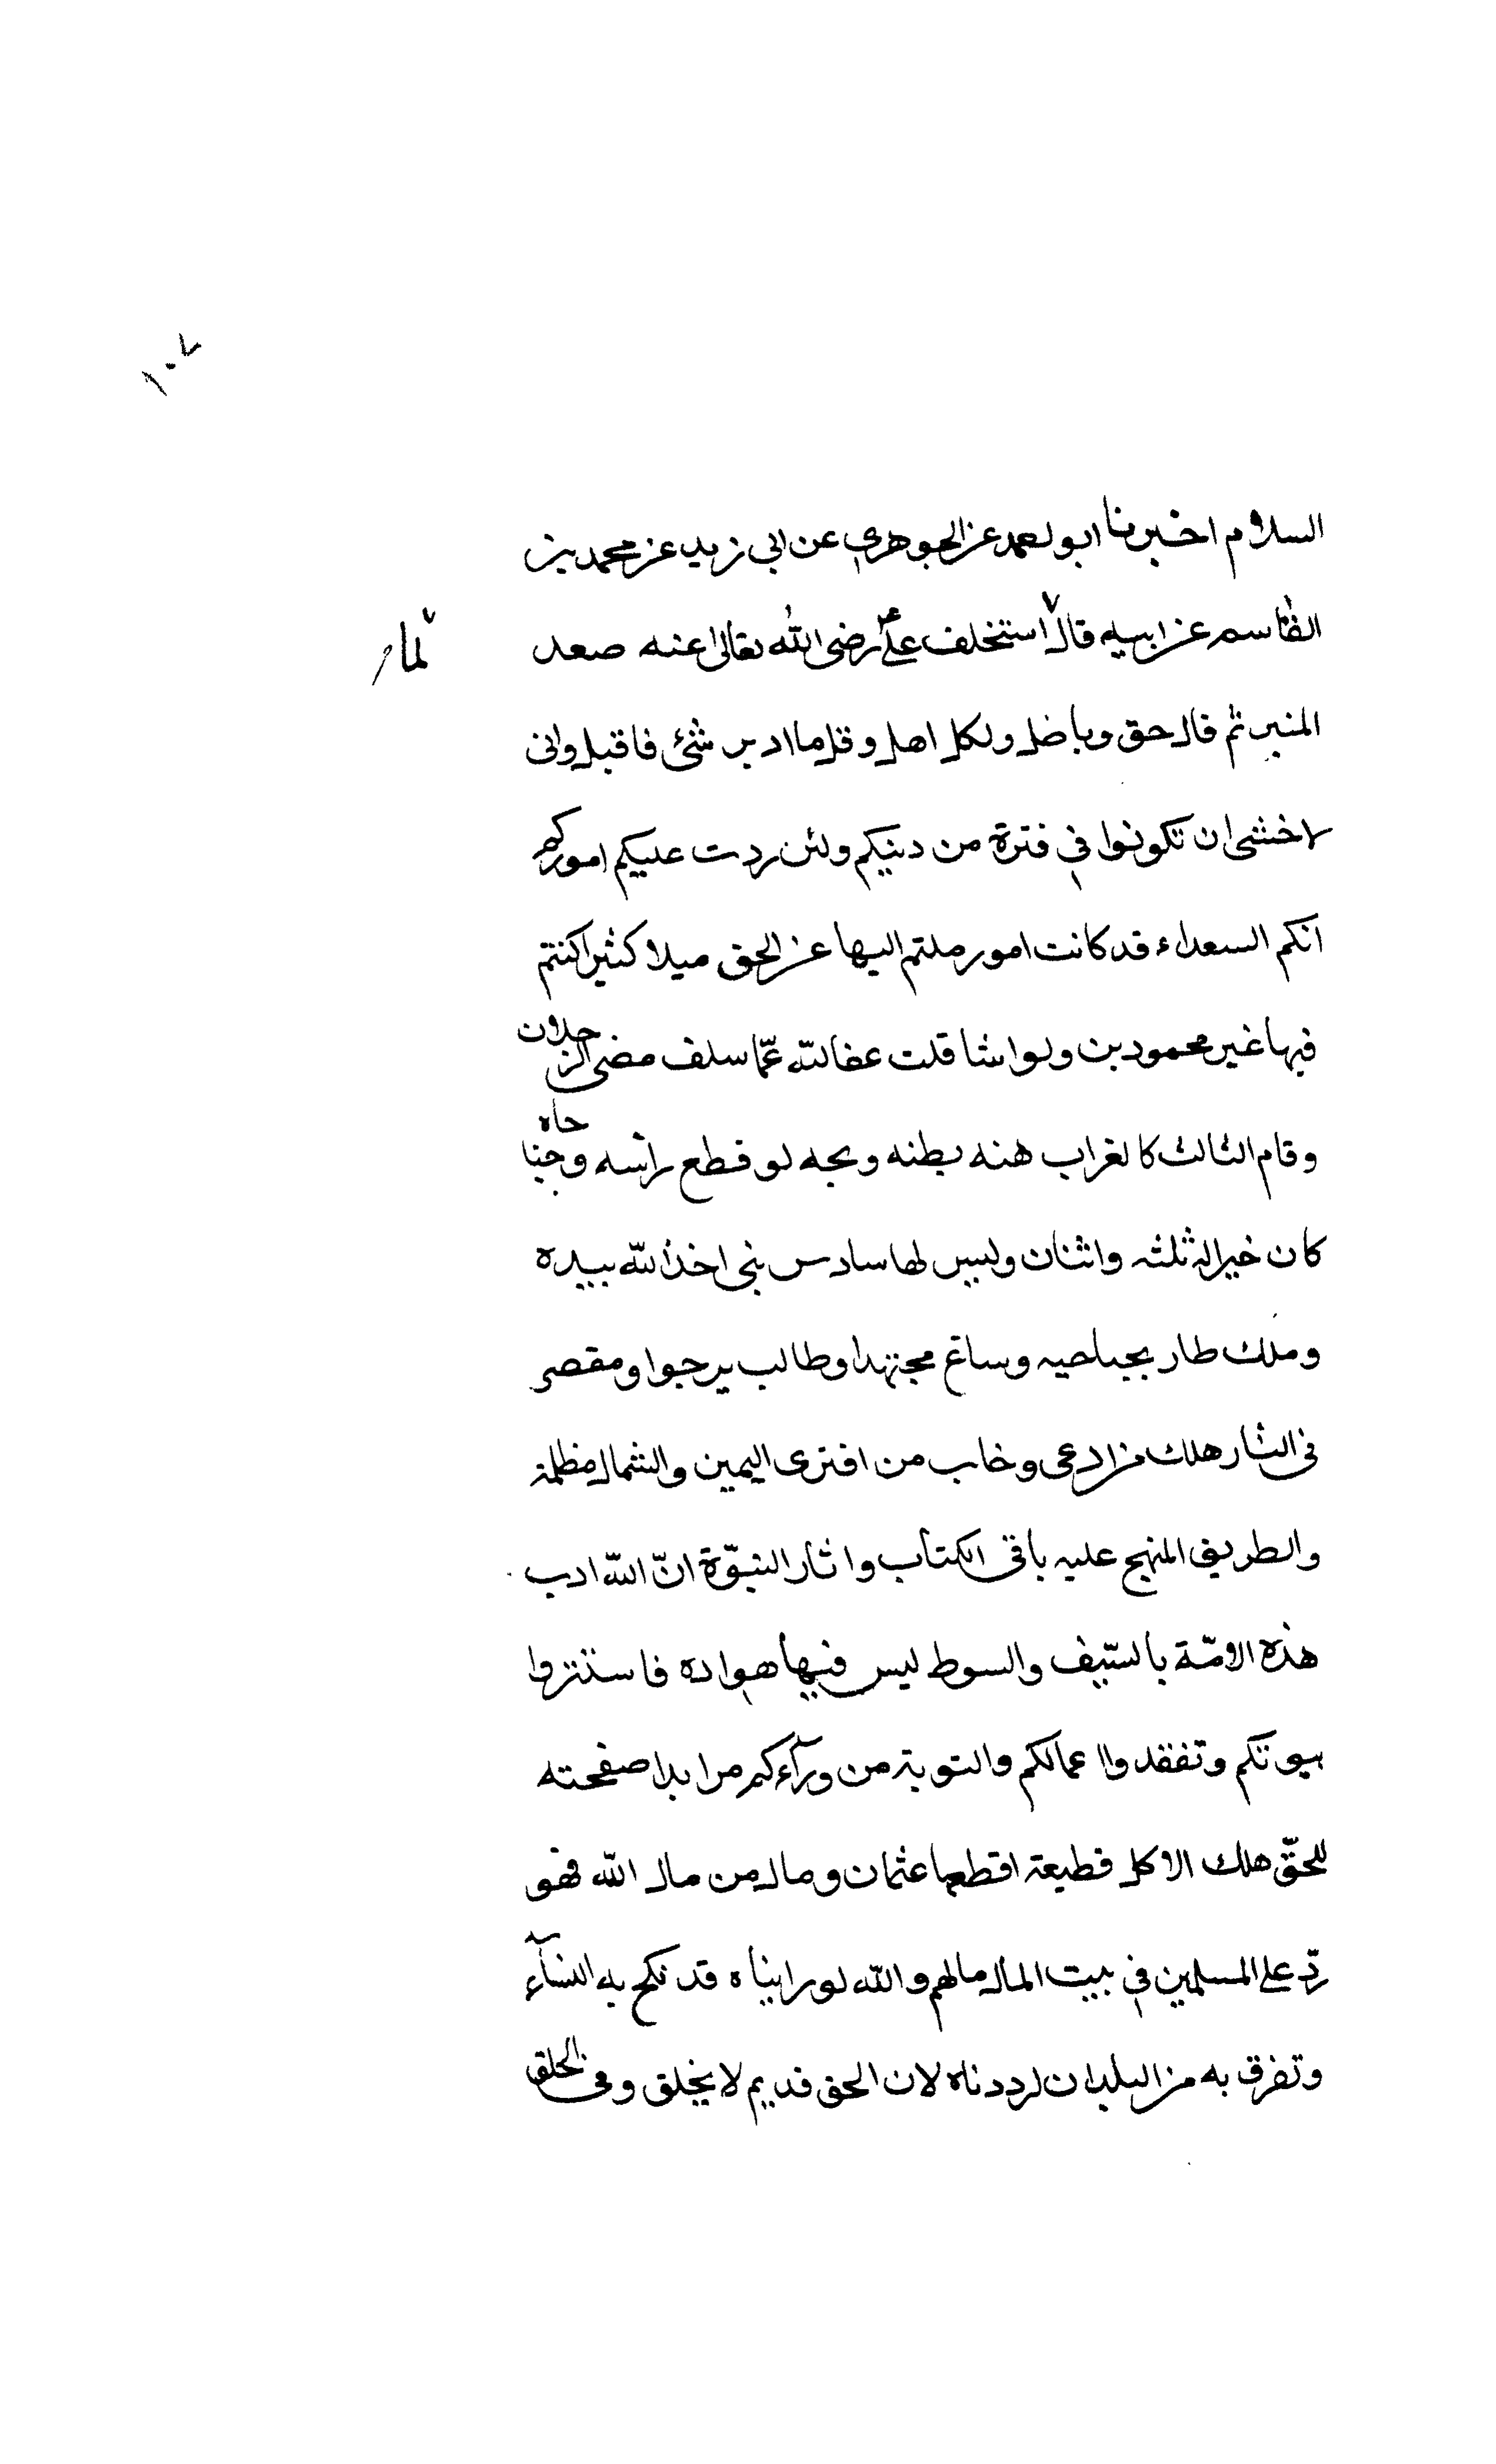 ١٠٧
السلام اخبرنا ابو احمد عن الجوهري عن ابي زيد عن محمد بن
القاسم عن ابيه قال استخلف علي رضى الله تعالى عنه صعد
لما
المنبر ثم قال حق وباطل ولكل اهل وقل ما ادبر شئ فاقبل وانى
لاخشى ان تكونوا في فترة من دينكم ولئن ردت عليكم اموركم
انكم السعداء قد كانت امور ملتم اليها عن الحق ميلا كثيرا كنتم
فيها غير محمودين ولو اشا قلت عفا الله عمّا سلف مضى الرجلان
وقام الثالث كالغراب همه بطنه ويحه لو قطع راسه وجناحاه
كان خيرا له ثلثه واثنان وليس لها سادس نبى اخذ الله بيده
وملك طار بجناحيه وساع مجتهدا وطالب يرجوا ومقصر
في النار هلك من ادعى وخاب من افترى اليمين والشمال مظلمة
والطريق المنهج عليه باقى الكتاب واثار النبوّة انّ الله ادب
هذه الامّة بالسّيف والسوط ليس فيها هواده فاستتروا
بيوتكم وتفقدوا اعمالكم والتوبة من ورآءكم من ابدا صفحته
للحقّ هلك الا كل قطيعة اقطعها عثمان ومال من مال الله فهو
ردّ على المسلمين في بيت المال مالهم والله لو رايناه قد نكح به النسآء
وتفرق به من البلدان لرددناه لان الحق قديم لا يخلق وفى الحلق